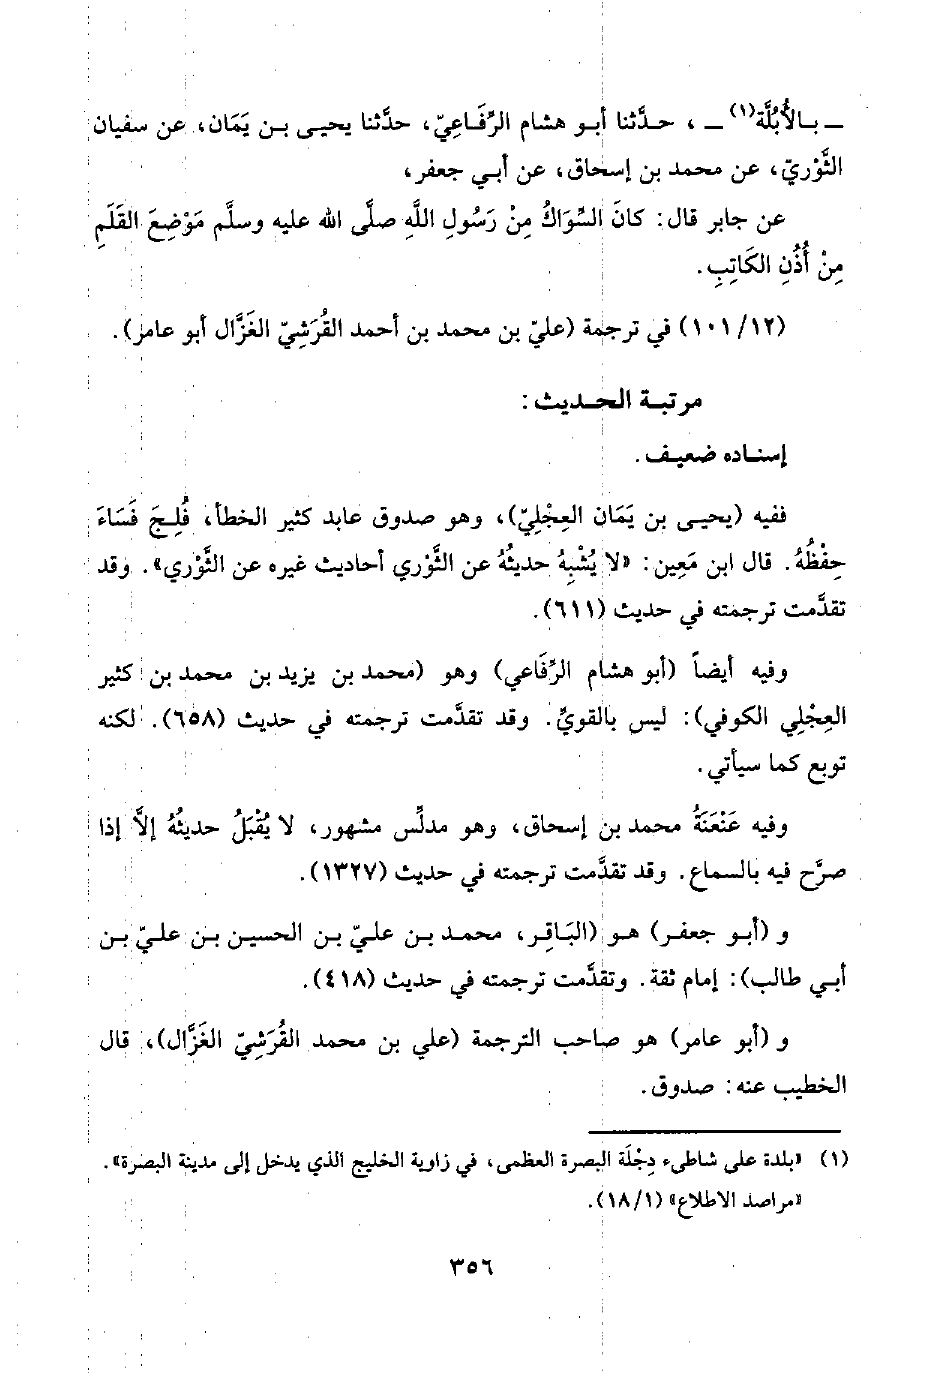 ـ بـالأُبُلَّة(١) ـ ، حـدَّثنا أبـو هشام الرِّفَـاعِيّ، حدَّثنا يحيـى بـن يَمَان، عن سفيان
الثَّوْريّ، عن محمد بن إسحاق، عن أبـي جعفر،
عن جابر قال: كانَ السِّوَاكُ مِنْ رَسُولِ اللَّهِ صلَّى الله عليه وسلَّم مَوْضِعَ القَلَمِ
مِنْ أُذُنِ الكَاتِبِ.
(١٠١/١٢) في ترجمة (عليّ بن محمد بن أحمد القُرَشِيّ الغَزَّال أبو عامر).
مرتبـة الحـديث:
إسنـاده ضعيـف.
ففيه (يحيـى بن يَمَان العِجْلِيّ)، وهو صدوق عابد كثير الخطأ، فُلِـجَ فَسَاءَ
حِفْظُهُ. قال ابن مَعِين: «لا يُشْبِهُ حديثُهُ عن الثَّوْري أحاديث غيره عن الثَّوْري». وقد
تقدَّمت ترجمته في حديث (٦١١).
وفيه أيضاً (أبو هشام الرِّفَاعي) وهو (محمد بن يزيد بن محمد بن كثير
العِجْلِي الكوفي): ليس بالقويِّ. وقد تقدَّمت ترجمته في حديث (٦٥٨). لكنه
توبع كما سيأتي.
وفيه عَنْعَنَةُ محمد بن إسحاق، وهو مدلِّس مشهور، لا يُقْبَلُ حديثُهُ إلاَّ إذا
صرَّح فيه بالسماع. وقد تقدَّمت ترجمته في حديث (١٣٢٧).
و (أبـو جعفـر) هـو (البَـاقِـر، محمـد بـن علـيّ بـن الحسيـن بـن علـيّ بـن
أبـي طالب): إمام ثقة. وتقدَّمت ترجمته في حديث (٤١٨).
و (أبو عامر) هو صاحب الترجمة (علي بن محمد القُرَشِيّ الغَزَّال)، قال
الخطيب عنه: صدوق.
(١) «بلدة على شاطىء دِجْلَة البصرة العظمى، في زاوية الخليج الذي يدخل إلى مدينة البصرة».
«مراصد الاطلاع» (١٨/١).
٣٥٦